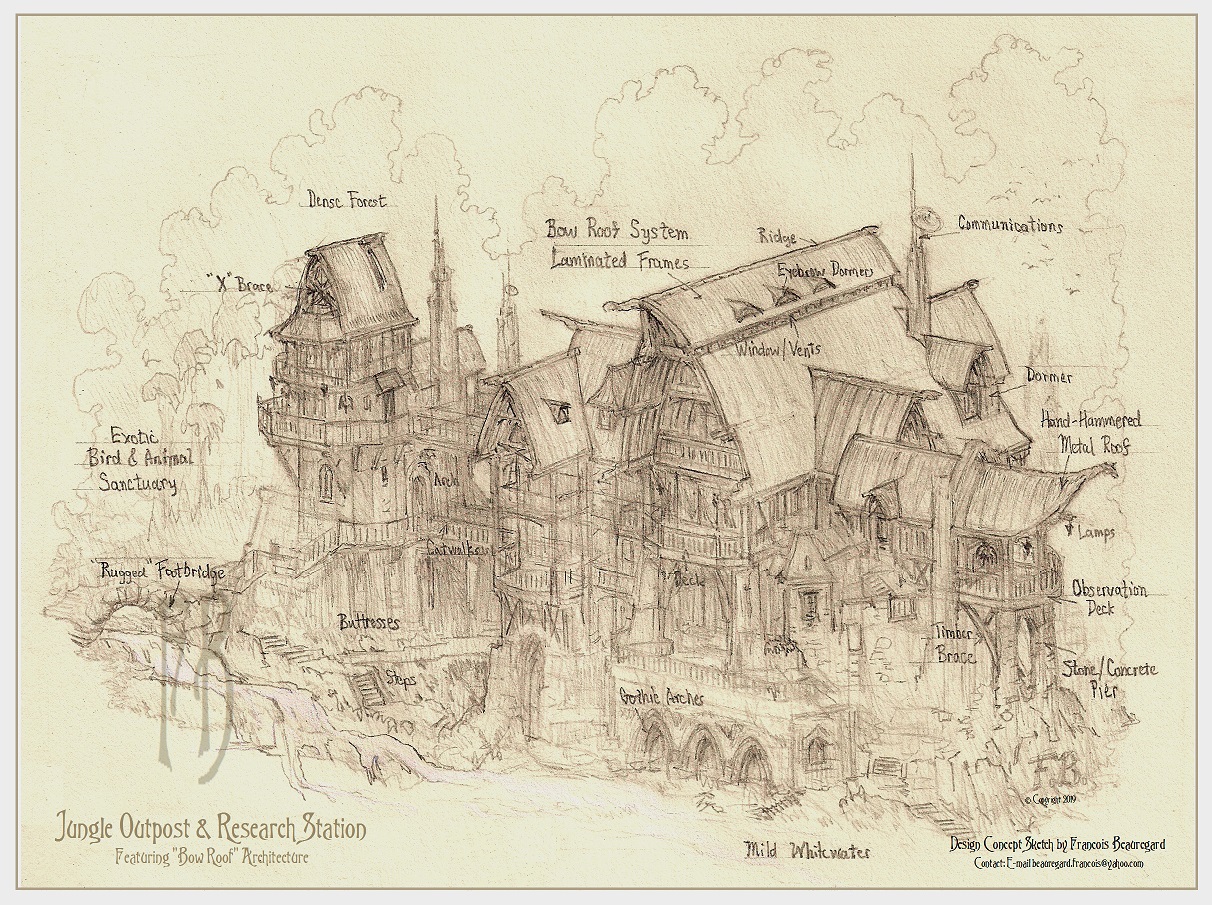 Dense Forest
Bow Roof System
Laminated Frames
Ridge
Communications
Eyebrow Dormers
"X" Brace
Window/Vents
Dormer
Hand-Hammered
Metal Roof
Exotic
Bird & Animal
Sanctuary
Arch
Lamps
Catwalks
"Rugged" Footbridge
Deck
Observation
Deck
Buttresses
Timber
Brace
Steps
Stone/Concrete
Pier
Gothic Arches
FB
© Copyright 2019
Jungle Outpost & Research Station
Featuring "Bow Roof" Architecture
Mild Whitewater
Design Concept Sketch by Francois Beauregard
Contact: E-mail beauregard.francois@yahoo.com